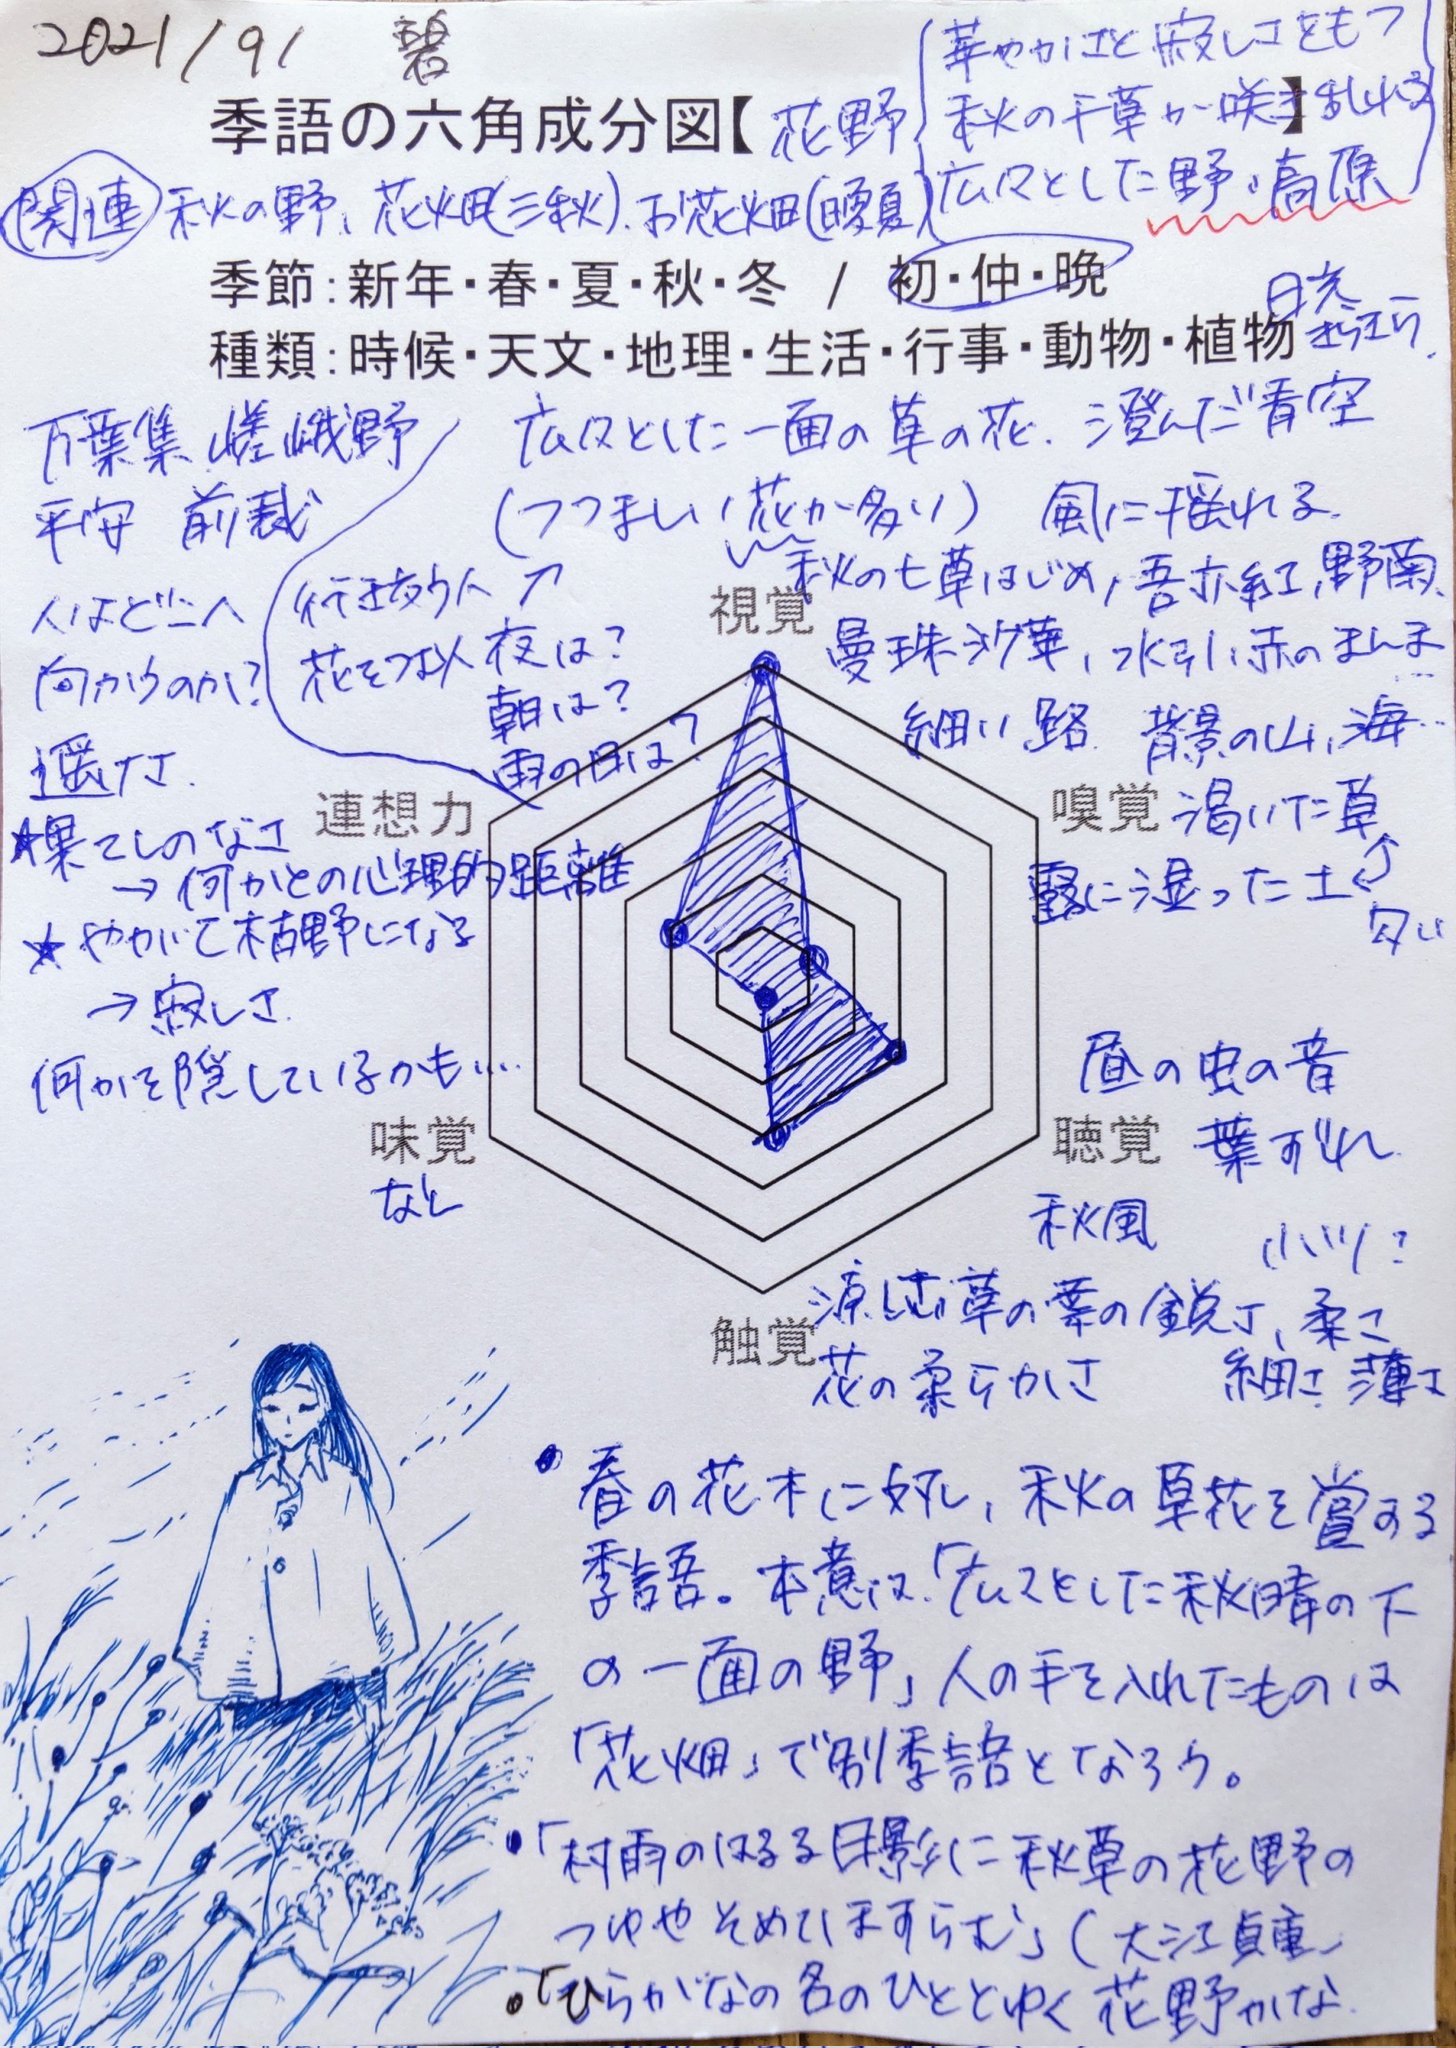 2021/9/ 碧
華やかさと寂しさをもつ
季語の六角成分図【花野】
秋の千草が咲き乱れる
広々とした野・高原
関連 秋の野、花畑(三秋)、お花畑(晩夏)
季節:新年・春・夏・秋・冬 / 初・仲・晩
種類:時候・天文・地理・生活・行事・動物・植物
日光
きらきら
万葉集 嵯峨野
平安 前栽
広々とした一面の草の花、澄んだ青空
(つつましい花が多い) 風に揺れる
秋の七草はじめ、吾亦紅、野菊、
曼珠沙華、水引、赤のまんま…
細い路 背景の山、海…
行き交う人
花をつむ人
夜は?
朝は?
雨の日は?
人はどこへ
向かうのか?
遥けさ
★果てしのなさ
→何かとの心理的距離
★やがて枯野になる
→寂しさ
何かを隠しているかも…
視覚
連想力
嗅覚 渇いた草
露に湿った土
匂い
昼の虫の音
聴覚 葉ずれ
味覚
なし
秋風
触覚
涼しさ 草の葉の鋭さ、柔さ
花の柔らかさ 細さ 薄さ
・春の花木に対し、秋の草花を賞する
季語。本意は、「広々とした秋晴の下
の一面の野」人の手を入れたものは
「花畑」で別季語となろう。
・「村雨のはるる日影に秋草の花野の
つゆやそめてほすらむ」(大江貞重)
・「ひらがなの名のひととゆく花野かな